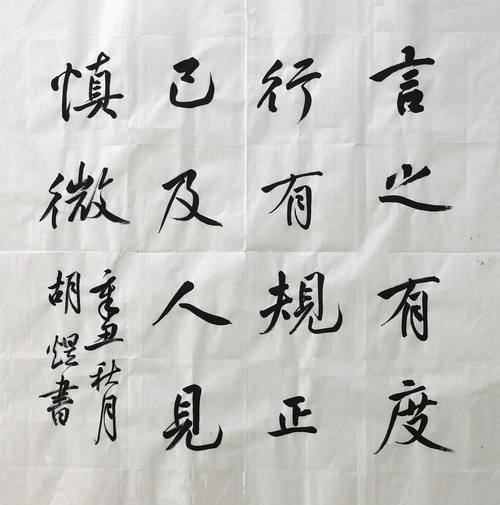 言之有度
行有規正
己及人見
慎微
辛丑秋月
胡煜書